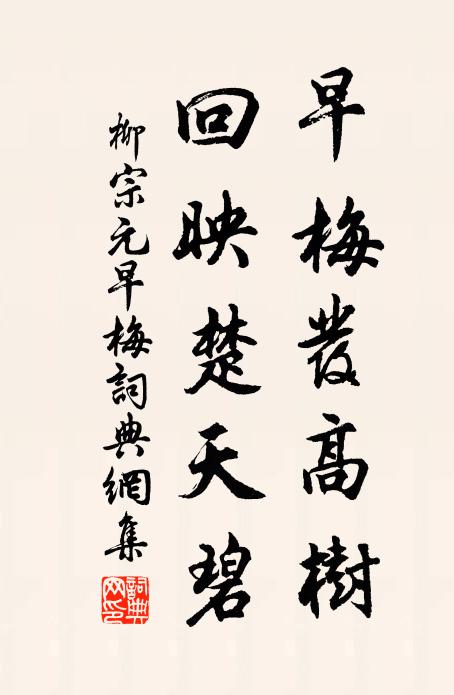 早梅發高樹
回映楚天碧
柳宗元早梅詞典網集
詞典網印